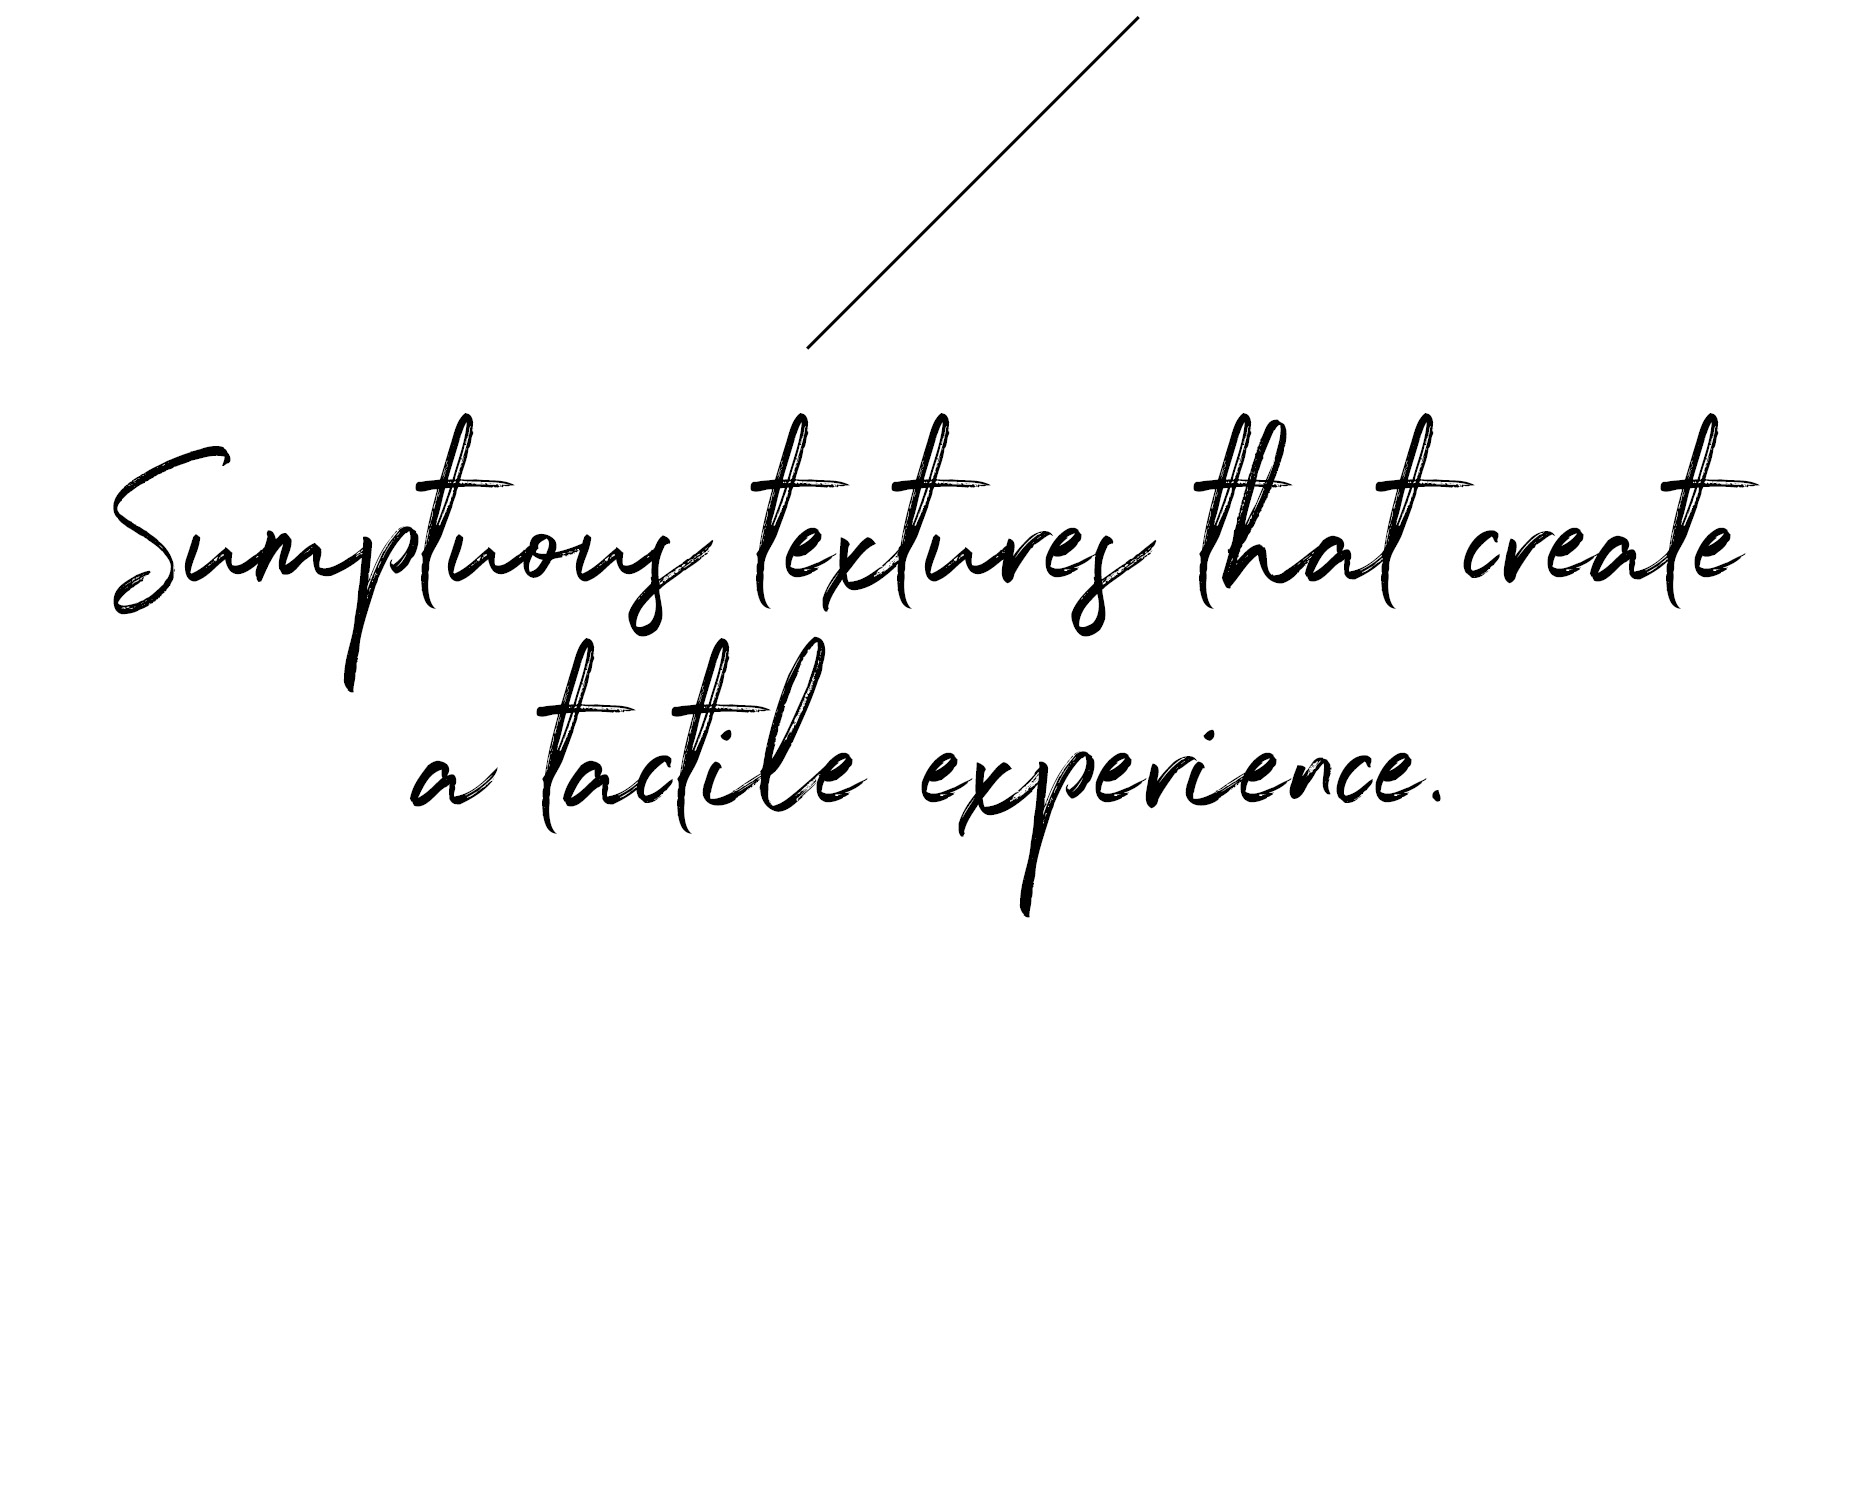 Sumptuous textures that create
a tactile experience.